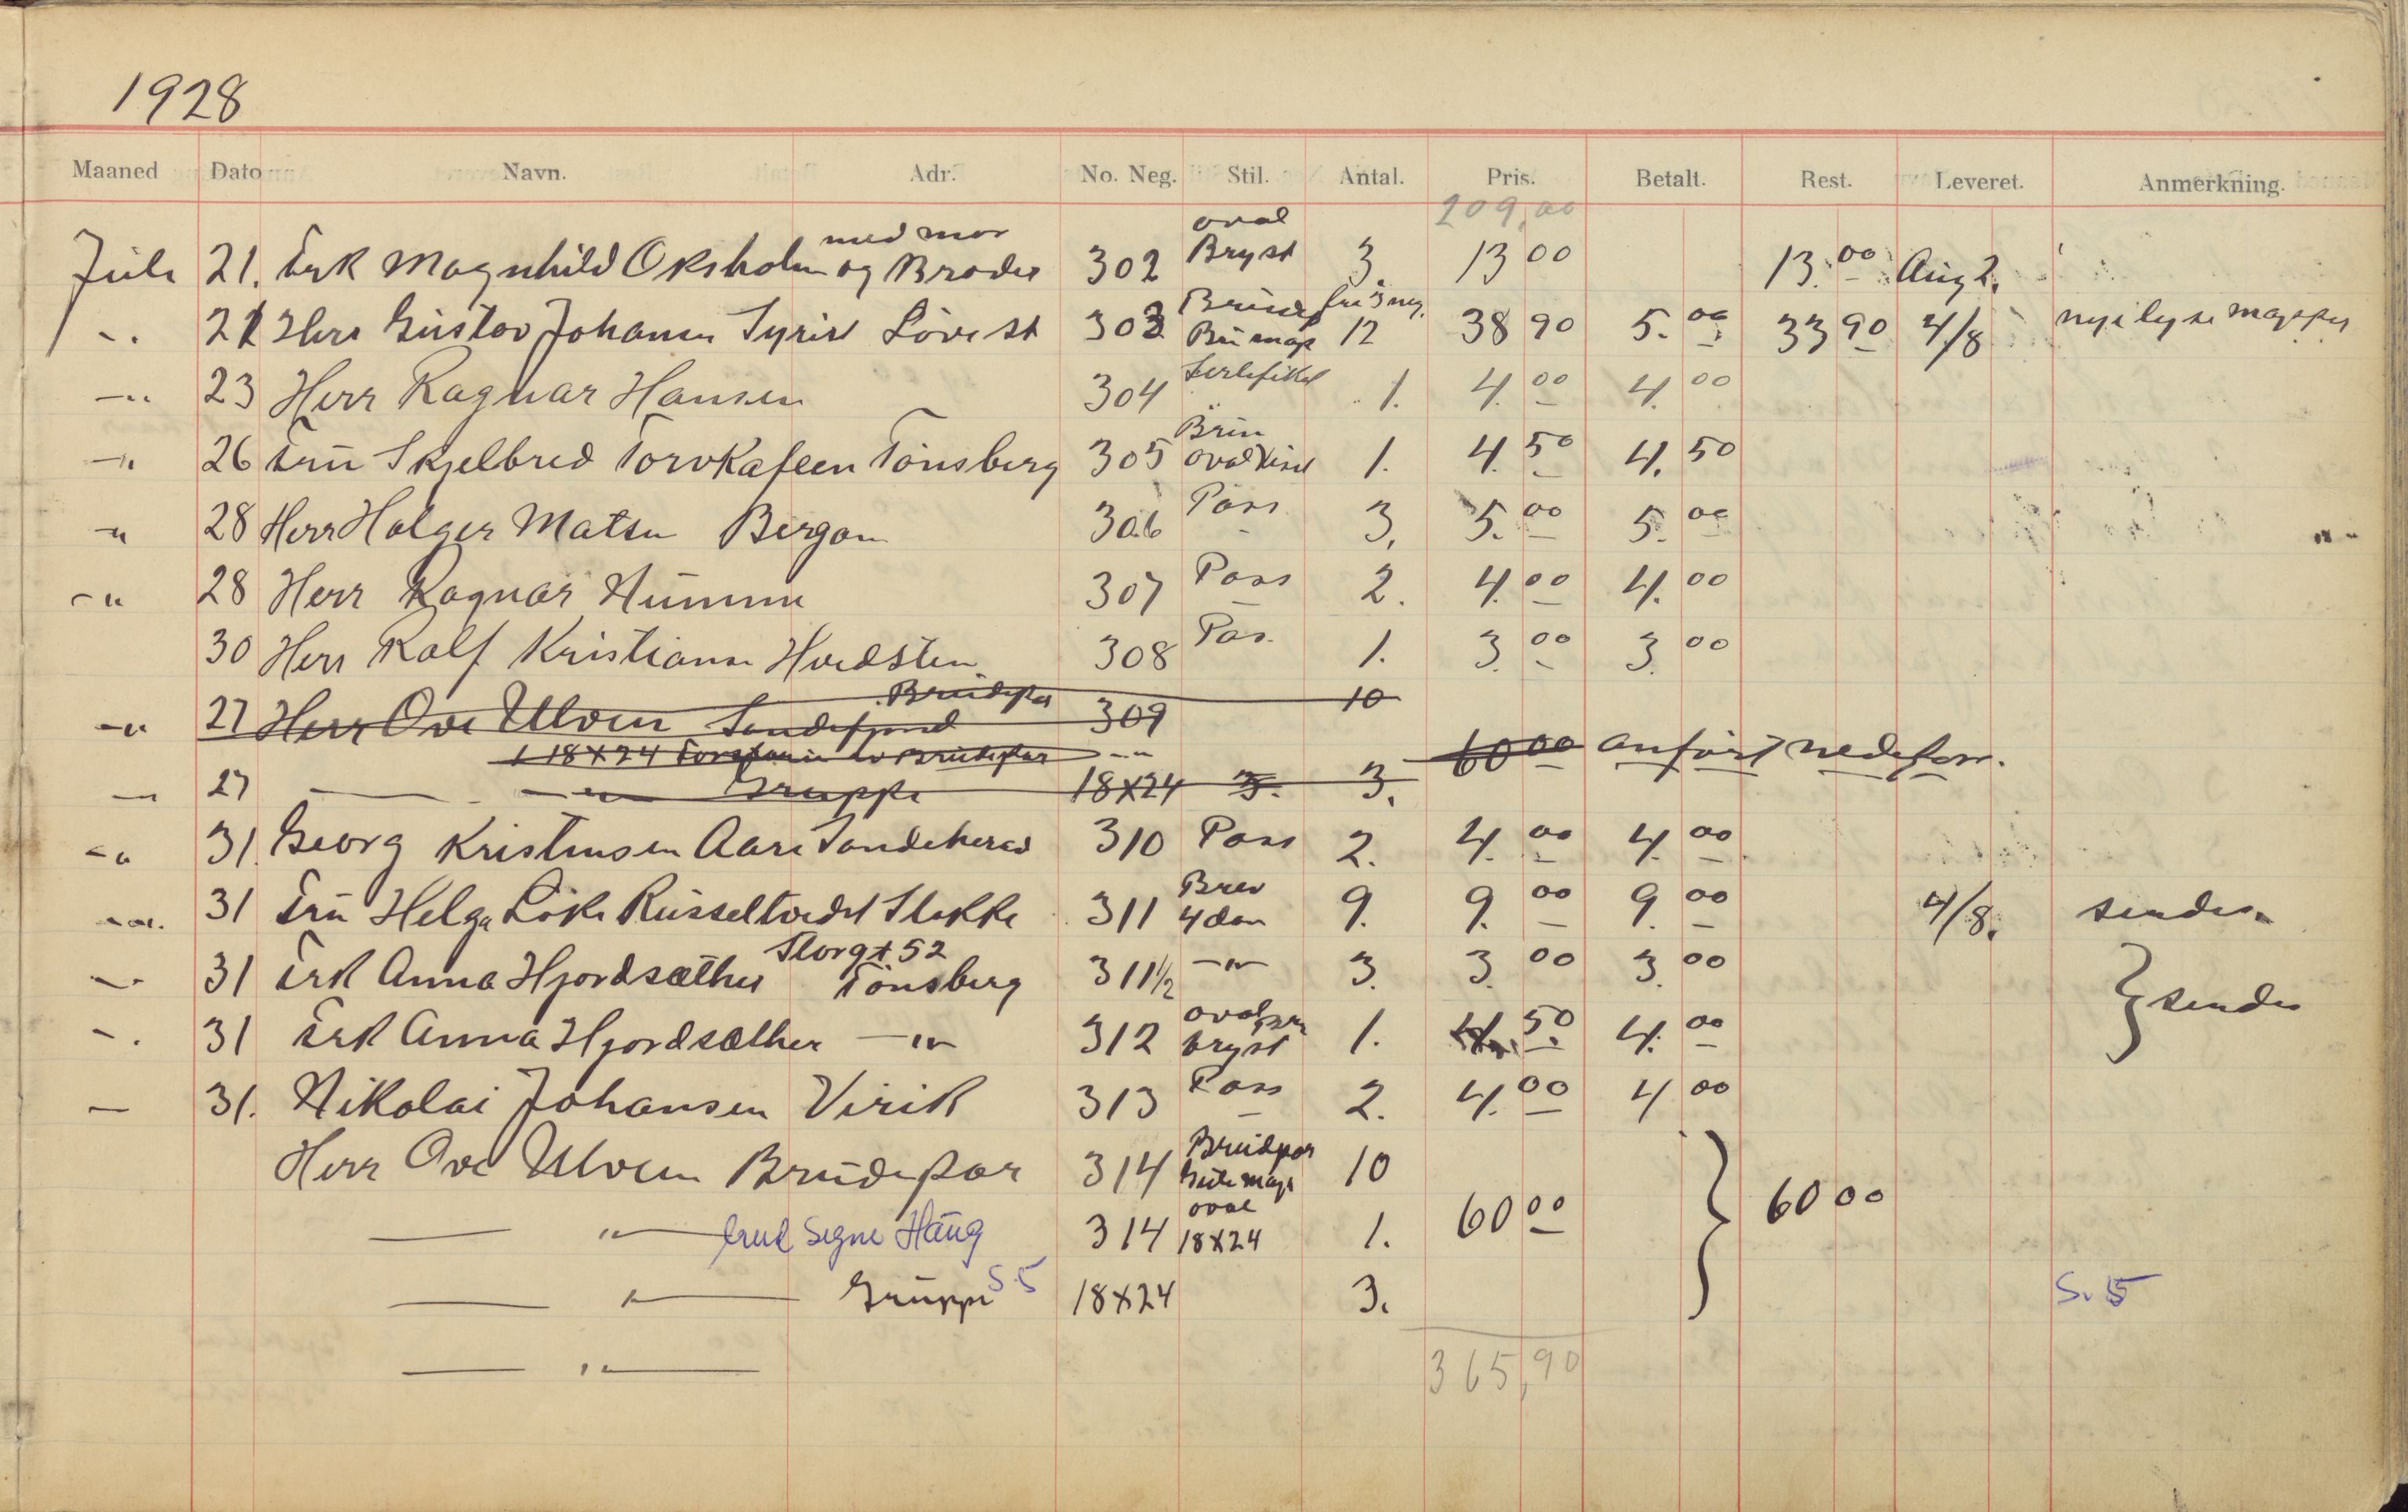 1928
Maaned Dato Navn. Adr. No. Neg. Stil. Antal. Pris. Betalt. Rest. Leveret. Anmerkning.
209,00
med mor oval
Juli 21. Frk Magnhild Oksholm og Broder 302 Bryst 3. 13 00 13.00 Aug 2.
21 Herr Gustav Johansen Løvest 303 12 38 90 5.00 33 90 4/8 nye lyse mapper
-"- 23 Herr Ragnar Hansen 304 1. 4.00 4.00
Brun
-"- 26 Fru Skjelbred Torvkafeen Tønsberg 305 oval 1. 4.50 4.50
-"- 28 Herr Holger Matsen Bergan 306 Pass 3. 5.00 5.00
-"- 28 Herr Ragnar 307 Pass 2. 4.00 4.00
30 Herr Ralf Kristiansen Hvidsten 308 Pas. 1. 3.00 3.00
Brudepar 10
-"- 27 Herr Ove Ulven Sandefjord 309
1 18X24 av Brudepar -"-
60 00 anført nedefor.
-"- 27 -"- Gruppe 18X24 3. 3.
-"- 31. Georg Kristensen Sandeherad 310 Pass 2. 4.00 4.00
Brev
-"- 31 Fru Helga Løke Russeltvedt Stokke 311 4 dan 9. 9.00 9.00 4/8. sendes
Storgt 52
-"- 31 Frk Anna Hjordsæther Tønsberg 311 1/2 -"- 3. 3.00 3.00
} sendes
oval
-"- 31 Frk Anna Hjordsæther -"- 312 bryst 1. 4.50 4.00
- 31. Nikolai Johansen Virik 313 Pass 2. 4.00 4 00
Brudpar
Herr Ove Ulven Brudepar 314 10
oval
-"- Signe Haug 314 18X24 1. 60 00 } 60 00
-"- Gruppe S5 18X24 3. S. 5
-"- 365,90